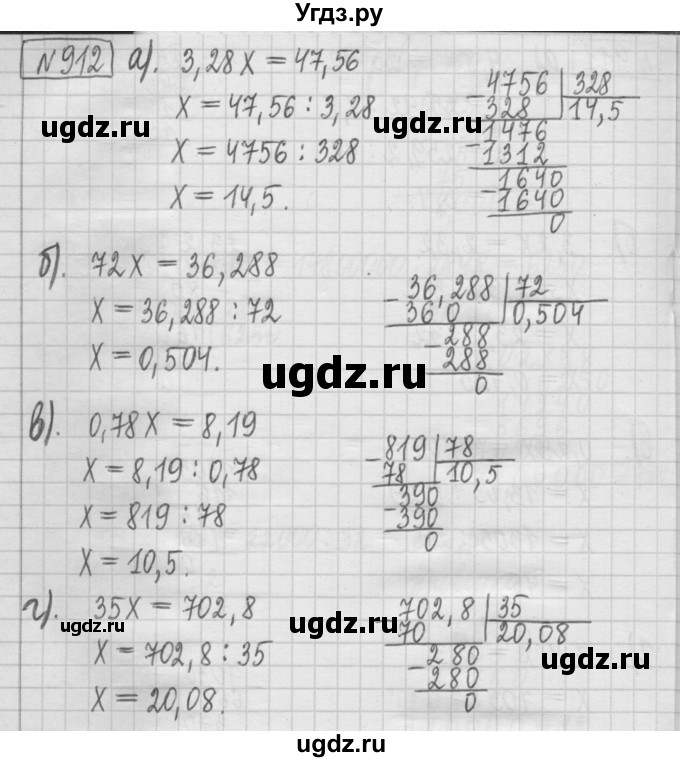 Угдз.ру
№912 а). 3,28x = 47,56
x = 47,56 : 3,28
x = 4756 : 328
x = 14,5.
4756 | 328
- 328 | 14,5
1476
- 1312
1640
- 1640
0
ugdz.ru
ugdz.ru
б). 72x = 36,288
x = 36,288 : 72
x = 0,504.
- 36,288 | 72
36 0 | 0,504
- 288
288
0
ugdz.ru
в). 0,78x = 8,19
x = 8,19 : 0,78
x = 819 : 78
x = 10,5.
- 819 | 78
78 | 10,5
390
- 390
0
ugdz.ru
г). 35x = 702,8
x = 702,8 : 35
x = 20,08.
- 702,8 | 35
70 | 20,08
- 280
280
0
ugdz.ru
ugdz.ru
ugdz.ru
ugdz.ru